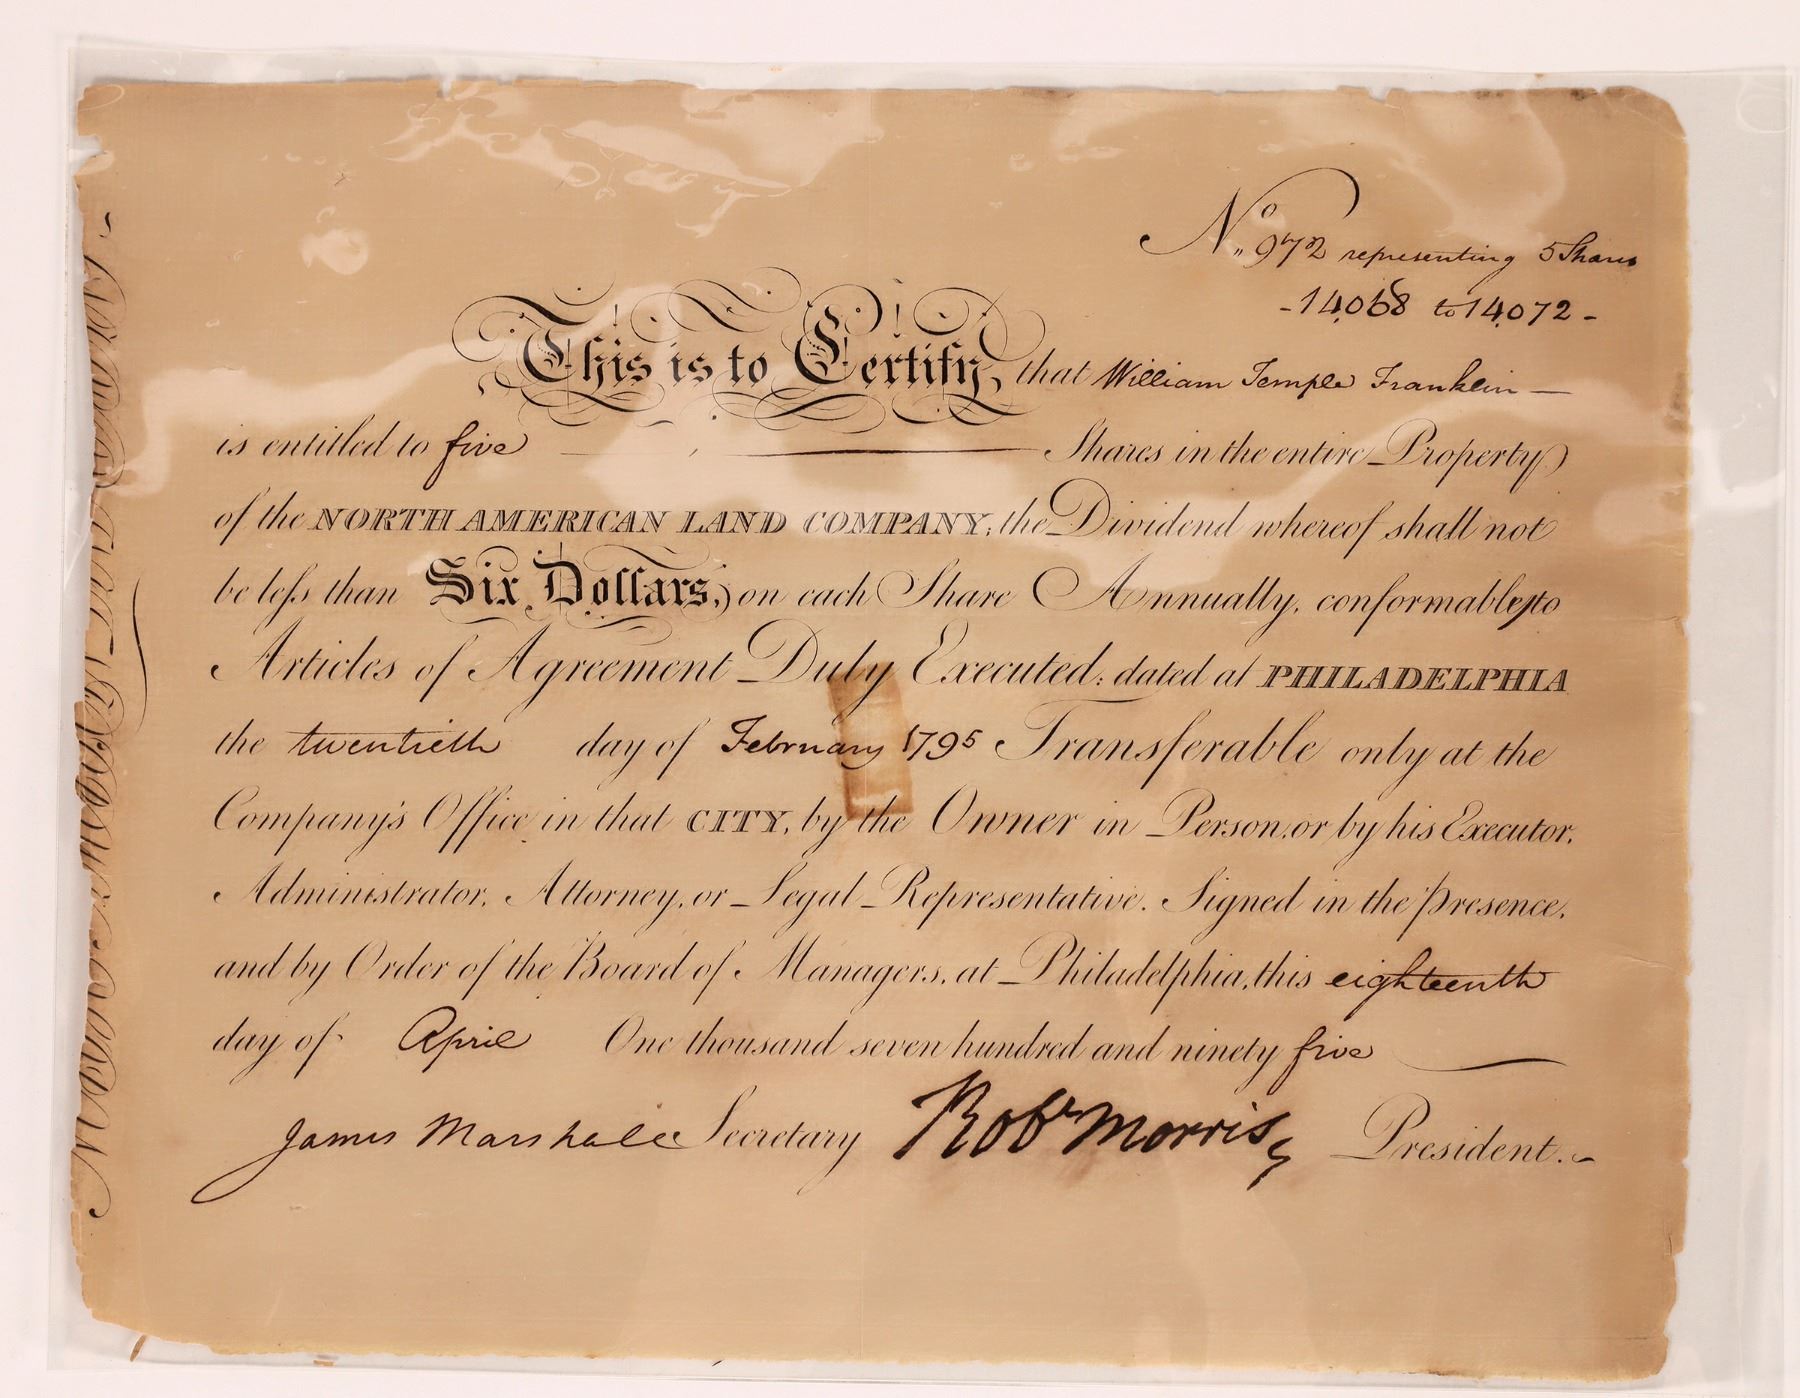 No. 972 representing 5 Shares
- 14,068 to 14,072 -
This is to Certify, that William Temple Franklin —
is entitled to five — Shares in the entire Property
of the NORTH AMERICAN LAND COMPANY; the Dividend whereof shall not
be less than Six Dollars, on each Share Annually, conformable to
Articles of Agreement Duly Executed; dated at PHILADELPHIA
the twentieth day of February 1795 Transferable only at the
Company's Office in that CITY, by the Owner in Person, or by his Executor,
Administrator, Attorney, or Legal Representative. Signed in the presence,
and by Order of the Board of Managers, at Philadelphia, this eighteenth
day of April One thousand seven hundred and ninety five —
James Marshall Secretary Robt Morris President.